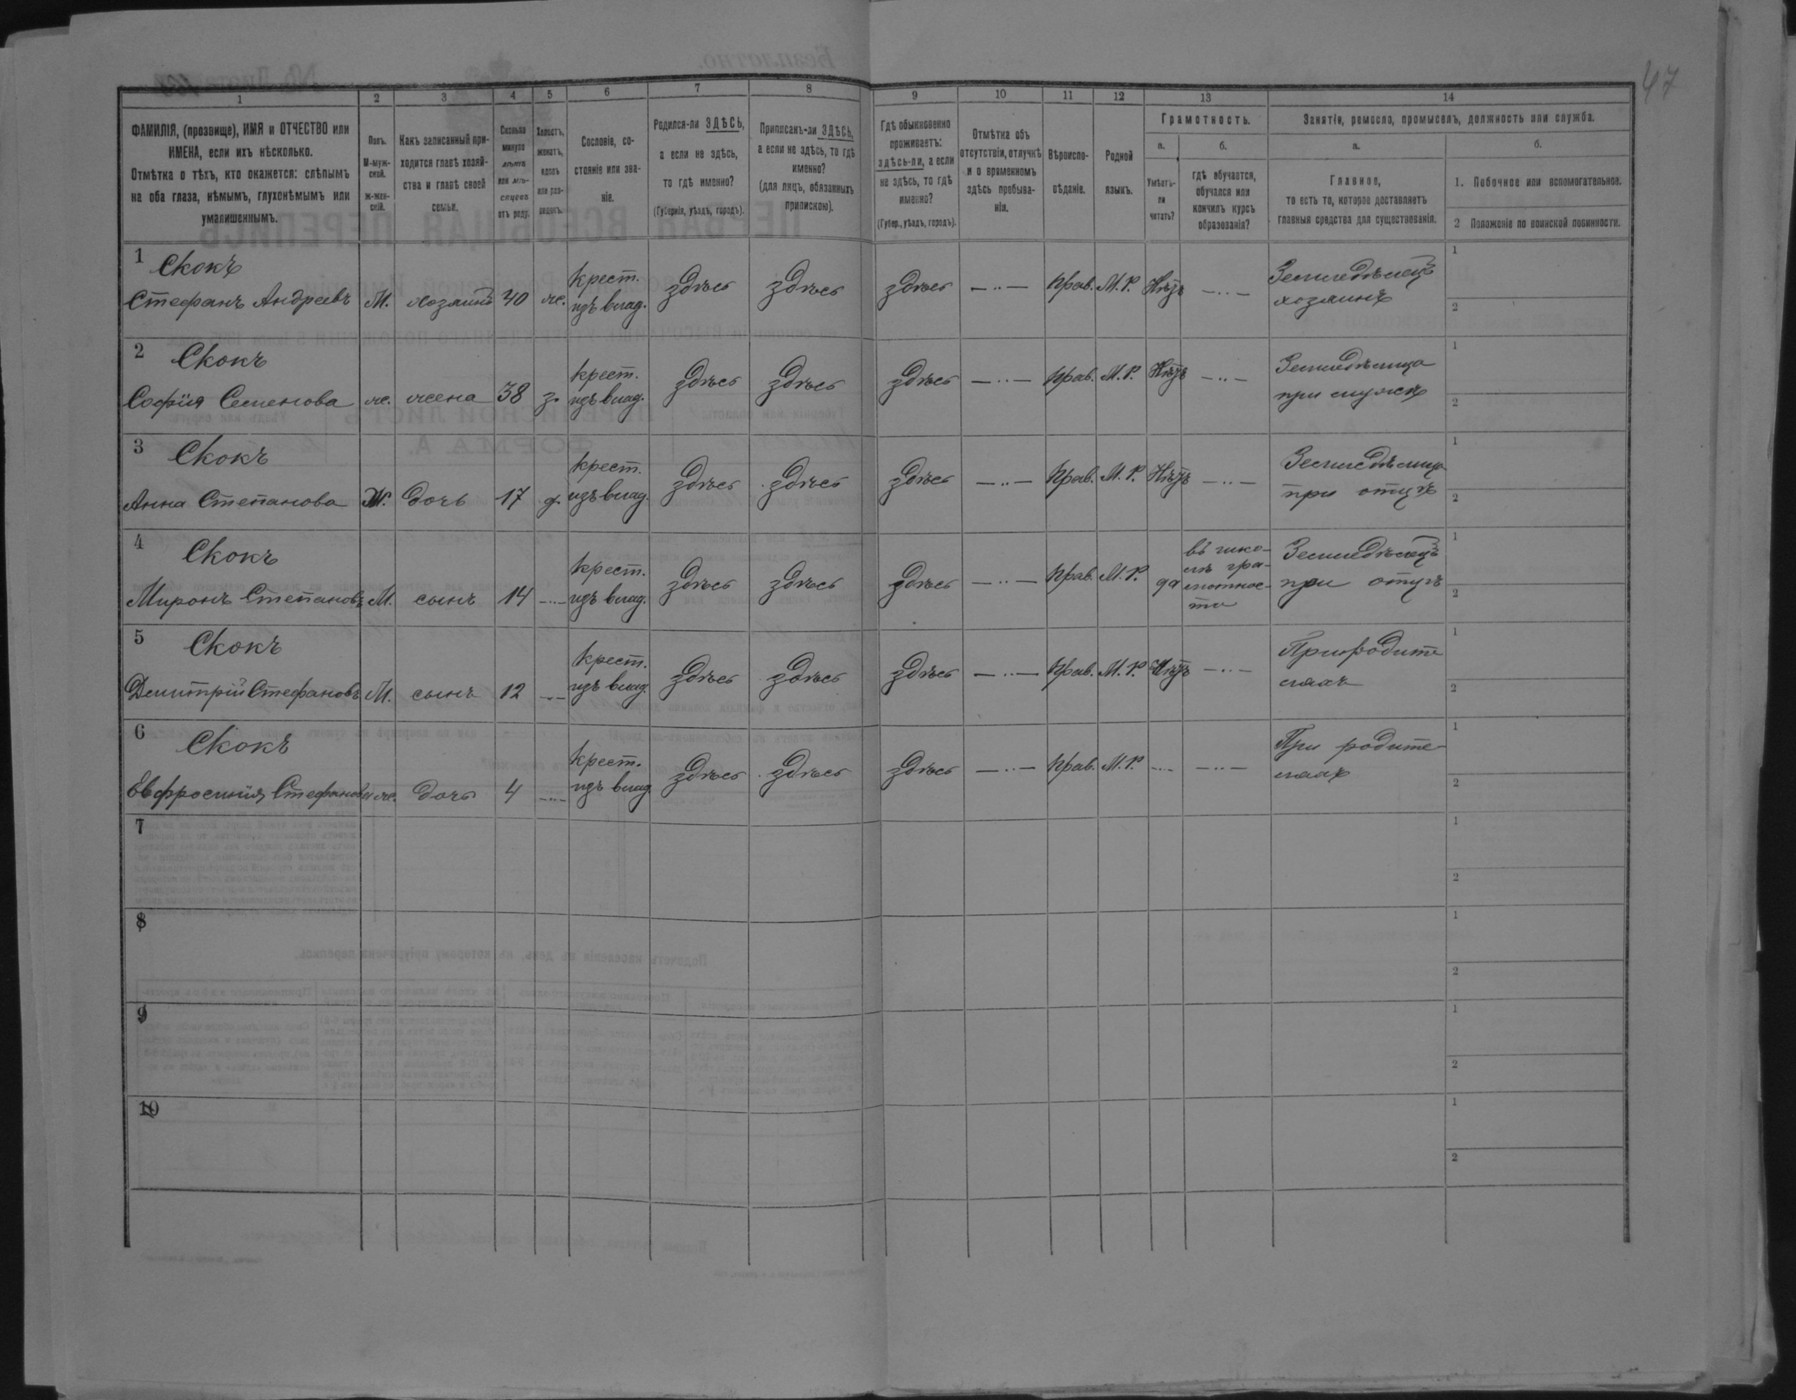 47
1 2 3 4 5 6 7 8 9 10 11 12 13 14
ФАМИЛІЯ, (прозвище), ИМЯ и ОТЧЕСТВО или
ИМЕНА, если ихъ нѣсколько.
Отмѣтка о тѣхъ, кто окажется: слѣпымъ
на оба глаза, нѣмымъ, глухонѣмымъ или
умалишеннымъ.
Полъ.
М-муж-
ской.
Ж-жен-
скій.
Какъ записанный при-
ходится главѣ хозяй-
ства и главѣ своей
семьи.
Сколько
минуло
лѣтъ
или мѣ-
сяцевъ
отъ роду.
Холостъ,
женатъ,
вдовъ
или раз-
веденъ.
Сословіе, со-
стояніе или зва-
ніе.
Родился-ли ЗДѢСЬ,
а если не здѣсь,
то гдѣ именно?
(Губернія, уѣздъ, городъ).
Приписанъ-ли ЗДѢСЬ,
а если не здѣсь, то гдѣ
именно?
(для лицъ, обязанныхъ
припискою).
Гдѣ обыкновенно
проживаетъ:
здѣсь-ли, а если
не здѣсь, то гдѣ
именно?
(Губер., уѣздъ, городъ).
Отмѣтка объ
отсутствіи, отлучкѣ
и о временномъ
здѣсь пребыва-
ніи.
Вѣроиспо-
вѣданіе.
Родной
языкъ.
Грамотность.
а.
Умѣетъ-
ли
читать?
б.
гдѣ обучается,
обучался или
кончилъ курсъ
образованія?
Занятіе, ремесло, промыселъ, должность или служба.
а.
Главное,
то есть то, которое доставляетъ
главныя средства для существованія.
б.
1. Побочное или вспомогательное.
2 Положеніе по воинской повинности.
1 Скокъ
Стефанъ Андреевъ М. хозяинъ 40 ж. крест. изъ влад. здѣсь здѣсь здѣсь —..— Прав. М.Р. Нѣтъ —..— Земледѣлецъ
хозяинъ
1
2
2 Скокъ
Софія Семенова ж. жена 38 з. крест. изъ влад. здѣсь здѣсь здѣсь —..— Прав. М.Р. Нѣтъ —..— Земледѣлица
при мужѣ
1
2
3 Скокъ
Анна Степанова Ж. дочь 17 д. крест. изъ влад. здѣсь здѣсь здѣсь —..— Прав. М.Р. Нѣтъ —..— Земледѣлица
при отцѣ
1
2
4 Скокъ
Миронъ Степановъ М. сынъ 14 —..— крест. изъ влад. здѣсь здѣсь здѣсь —..— Прав. М.Р. да въ шко-
лѣ гра-
мотнос-
ти
Земледѣлецъ
при отцѣ
1
2
5 Скокъ
Дмитрій Стефановъ М. сынъ 12 —..— крест. изъ влад. здѣсь здѣсь здѣсь —..— Прав. М.Р. Нѣтъ —..— При родите
ляхъ
1
2
6 Скокъ
Евфросинія Стефанова ж. дочь 4 —..— крест. изъ влад. здѣсь здѣсь здѣсь —..— Прав. М.Р. —..— —..— При родите
ляхъ
1
2
7
1
2
8
1
2
9
1
2
10
1
2